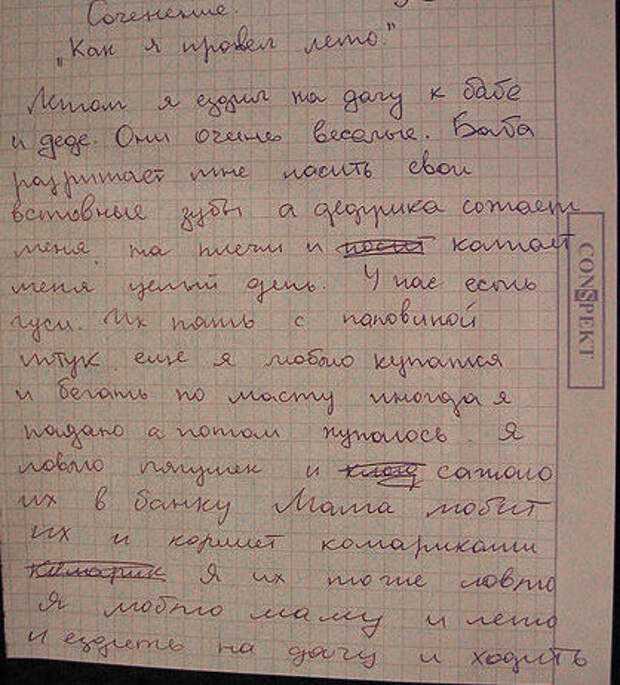 Соченение.
„Как я провел лето."
Летом я ездил на дачу к бабе
и деде. Они очень веселые. Баба
разришает мне насить свои
вставные зубы а дедушка сожает
меня на плечи и катает
меня целый день. У нас есть
гуси. Их пять с паловиной
штук еще я люблю купатся
и бегать по масту иногда я
падаю а потом купаюсь. Я
ловлю лягушек и сажаю
их в банку Мама любит
их и кормит комариками
комарик Я их тоже ловлю
Я люблю маму и лето
и ездить на дачу и ходить
CONSPEKT